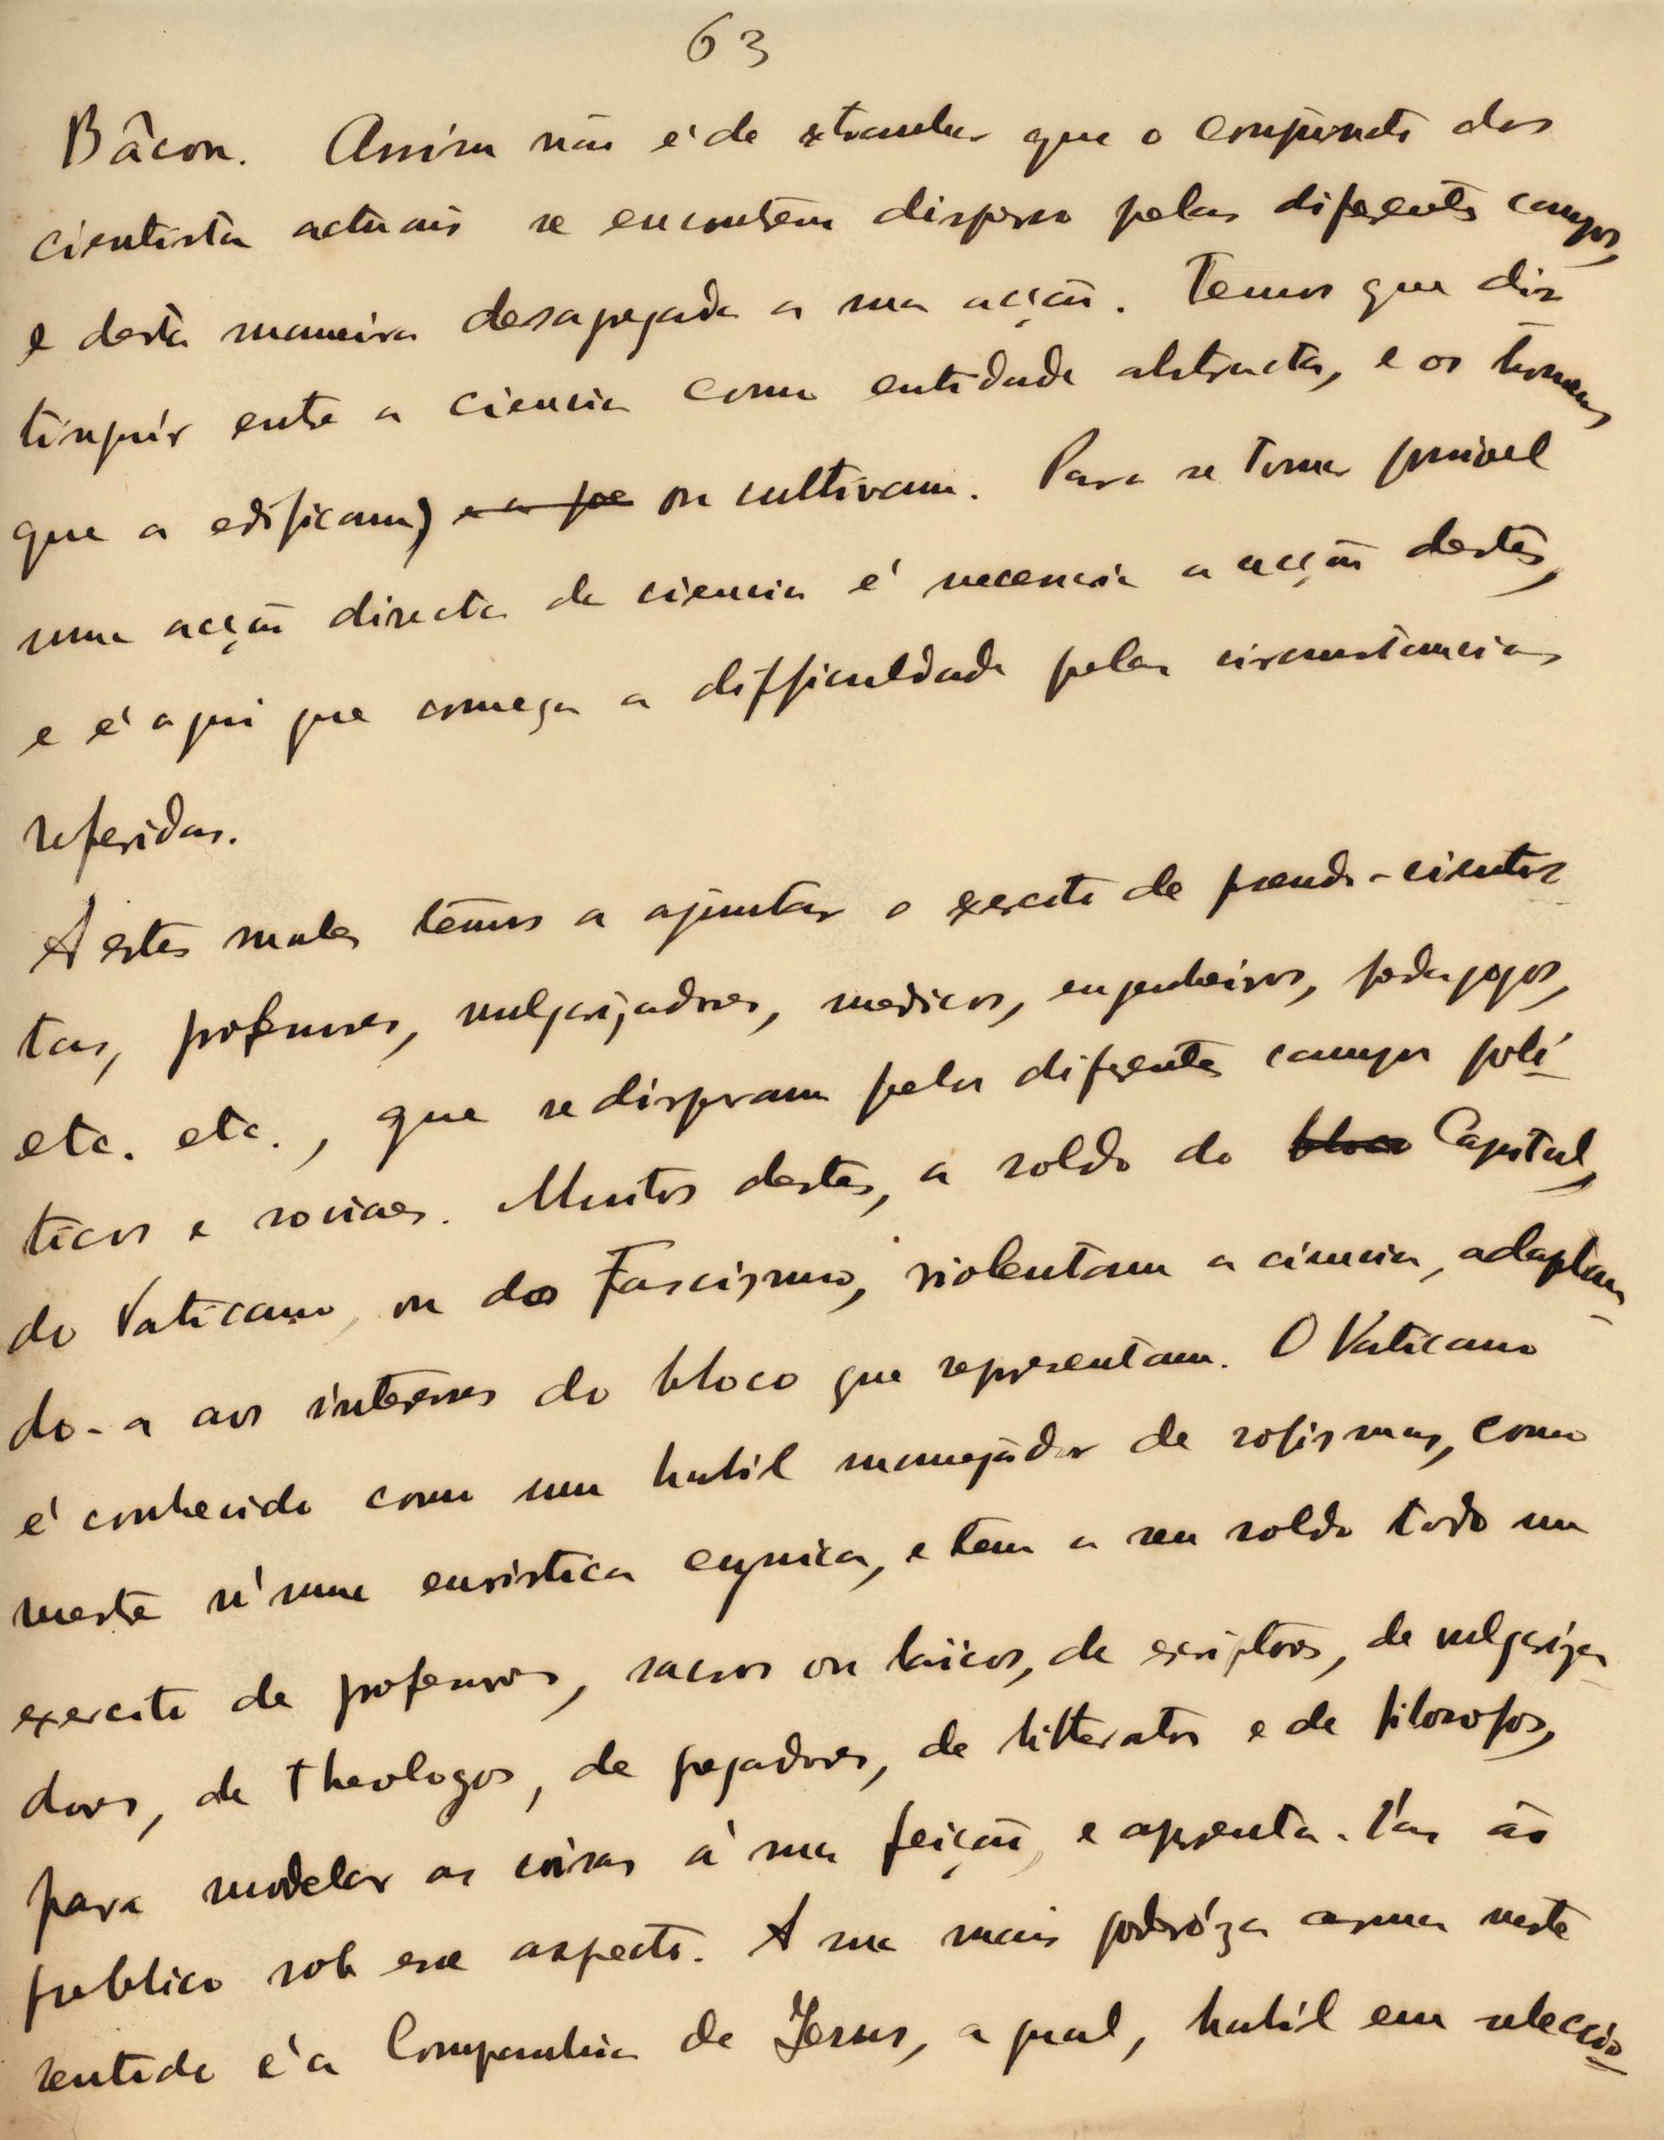 63
Bâcon. Assim não é de extranhar que o conjuncto dos
cientistas actuais se encontrem disperso pelos diferentes campos,
e desta maneira desapegada a sua acção. Temos que dis
tinguir entre a ciencia como entidade abstracta, e os homens
que a edificam) e a pe ou cultivam. Para se tornar possivel
uma acção directa da ciencia é necessaria a acção destes,
e é aqui que começa a difficuldade pelas circumstancias
referidas.
A estes males temos a ajuntar o exercito de pseudo-cientis
tas, professores, vulgarizadores, medicos, engenheiros, pedagogos,
etc. etc., que se dispersam pelos diferentes campos polí-
ticos e sociaes. Muitos destes, a soldo do bloco Capital,
do Vaticano, ou do Fascismo, violentam a ciencia, adaptan-
do-a aos interesses do bloco que representam. O Vaticano
é conhecido como um habil manejador de sofismas, como
mestre n'uma euristica cynica, e tem a seu soldo todo um
exercito de professores, sacros ou laicos, de escriptores, de vulgariza-
dores, de theologos, de pregadores, de litteratos e de filosofos,
para modelar as coisas á sua feição, e apresenta-las ao
publico sob esse aspecto. A sua mais poderóza arma neste
sentido é a Companhia de Jesus, a qual, habil em seleccio-